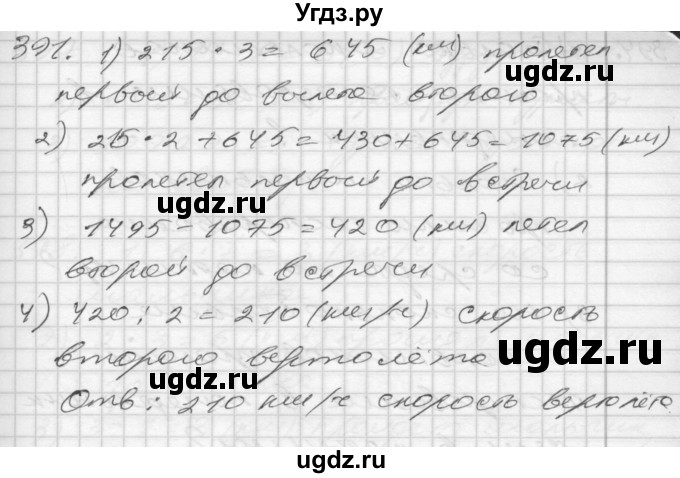 Угдз.ру
391. 1) 215 · 3 = 645 (км) пролетел
первый до вылета второго
2) 215 · 2 + 645 = 430 + 645 = 1075 (км)
пролетел первый до встречи
3) 1495 - 1075 = 420 (км) летел
второй до встречи
4) 420 : 2 = 210 (км/ч) скорость
второго вертолёта
Отв: 210 км/ч скорость вертолёта.
ugdz.ru
ugdz.ru
ugdz.ru
ugdz.ru
ugdz.ru
ugdz.ru
ugdz.ru
ugdz.ru